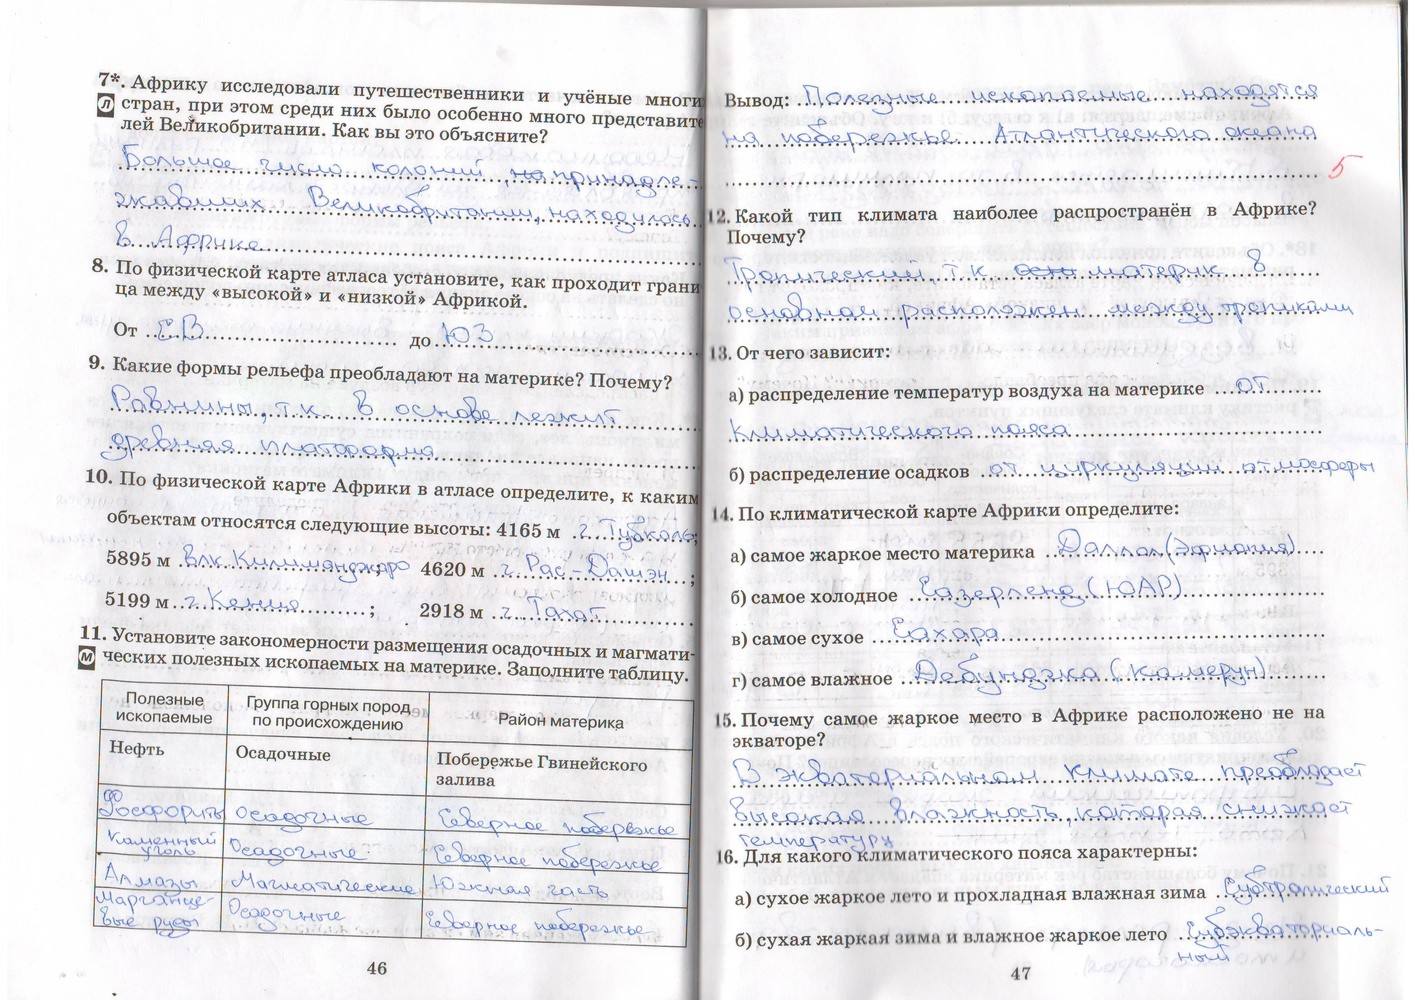 7*. Африку исследовали путешественники и учёные многи
Л стран, при этом среди них было особенно много представите
лей Великобритании. Как вы это объясните?
Большое число колоний, принадле-
жавших Великобритании, находилось
в Африке
8. По физической карте атласа установите, как проходит грани
ца между «высокой» и «низкой» Африкой.
От СВ до ЮЗ
9. Какие формы рельефа преобладают на материке? Почему?
Равнины, т.к. в основе лежит
древняя платформа
10. По физической карте Африки в атласе определите, к каким
объектам относятся следующие высоты: 4165 м г. Тубкаль;
5895 м влк. Килиманджаро 4620 м г. Рас-Дашэн;
5199 м г. Кения; 2918 м г. Тахат
11. Установите закономерности размещения осадочных и магмати-
М ческих полезных ископаемых на материке. Заполните таблицу.
Полезные ископаемые Группа горных пород по происхождению Район материка
Нефть Осадочные Побережье Гвинейского залива
Фосфориты Осадочные Северное побережье
Каменный уголь Осадочные Северное побережье
Алмазы Магматические Южная часть
Марганце-вые руды Осадочные Северное побережье
46
Вывод: Полезные ископаемые находятся
на побережье Атлантического океана
5
12. Какой тип климата наиболее распространён в Африке?
Почему?
Тропический, т.к. материк в
основном расположен между тропиками
13. От чего зависит:
а) распределение температур воздуха на материке от
климатического пояса
б) распределение осадков от циркуляции атмосферы
14. По климатической карте Африки определите:
а) самое жаркое место материка Даллол (Эфиопия)
б) самое холодное Сазерленд (ЮАР)
в) самое сухое Сахара
г) самое влажное Дебунджа (Камерун)
15. Почему самое жаркое место в Африке расположено не на
экваторе?
В экваториальном климате преобладает
высокая влажность, которая снижает
температуру
16. Для какого климатического пояса характерны:
а) сухое жаркое лето и прохладная влажная зима Субтропический
б) сухая жаркая зима и влажное жаркое лето Субэкваториаль-
ный
47